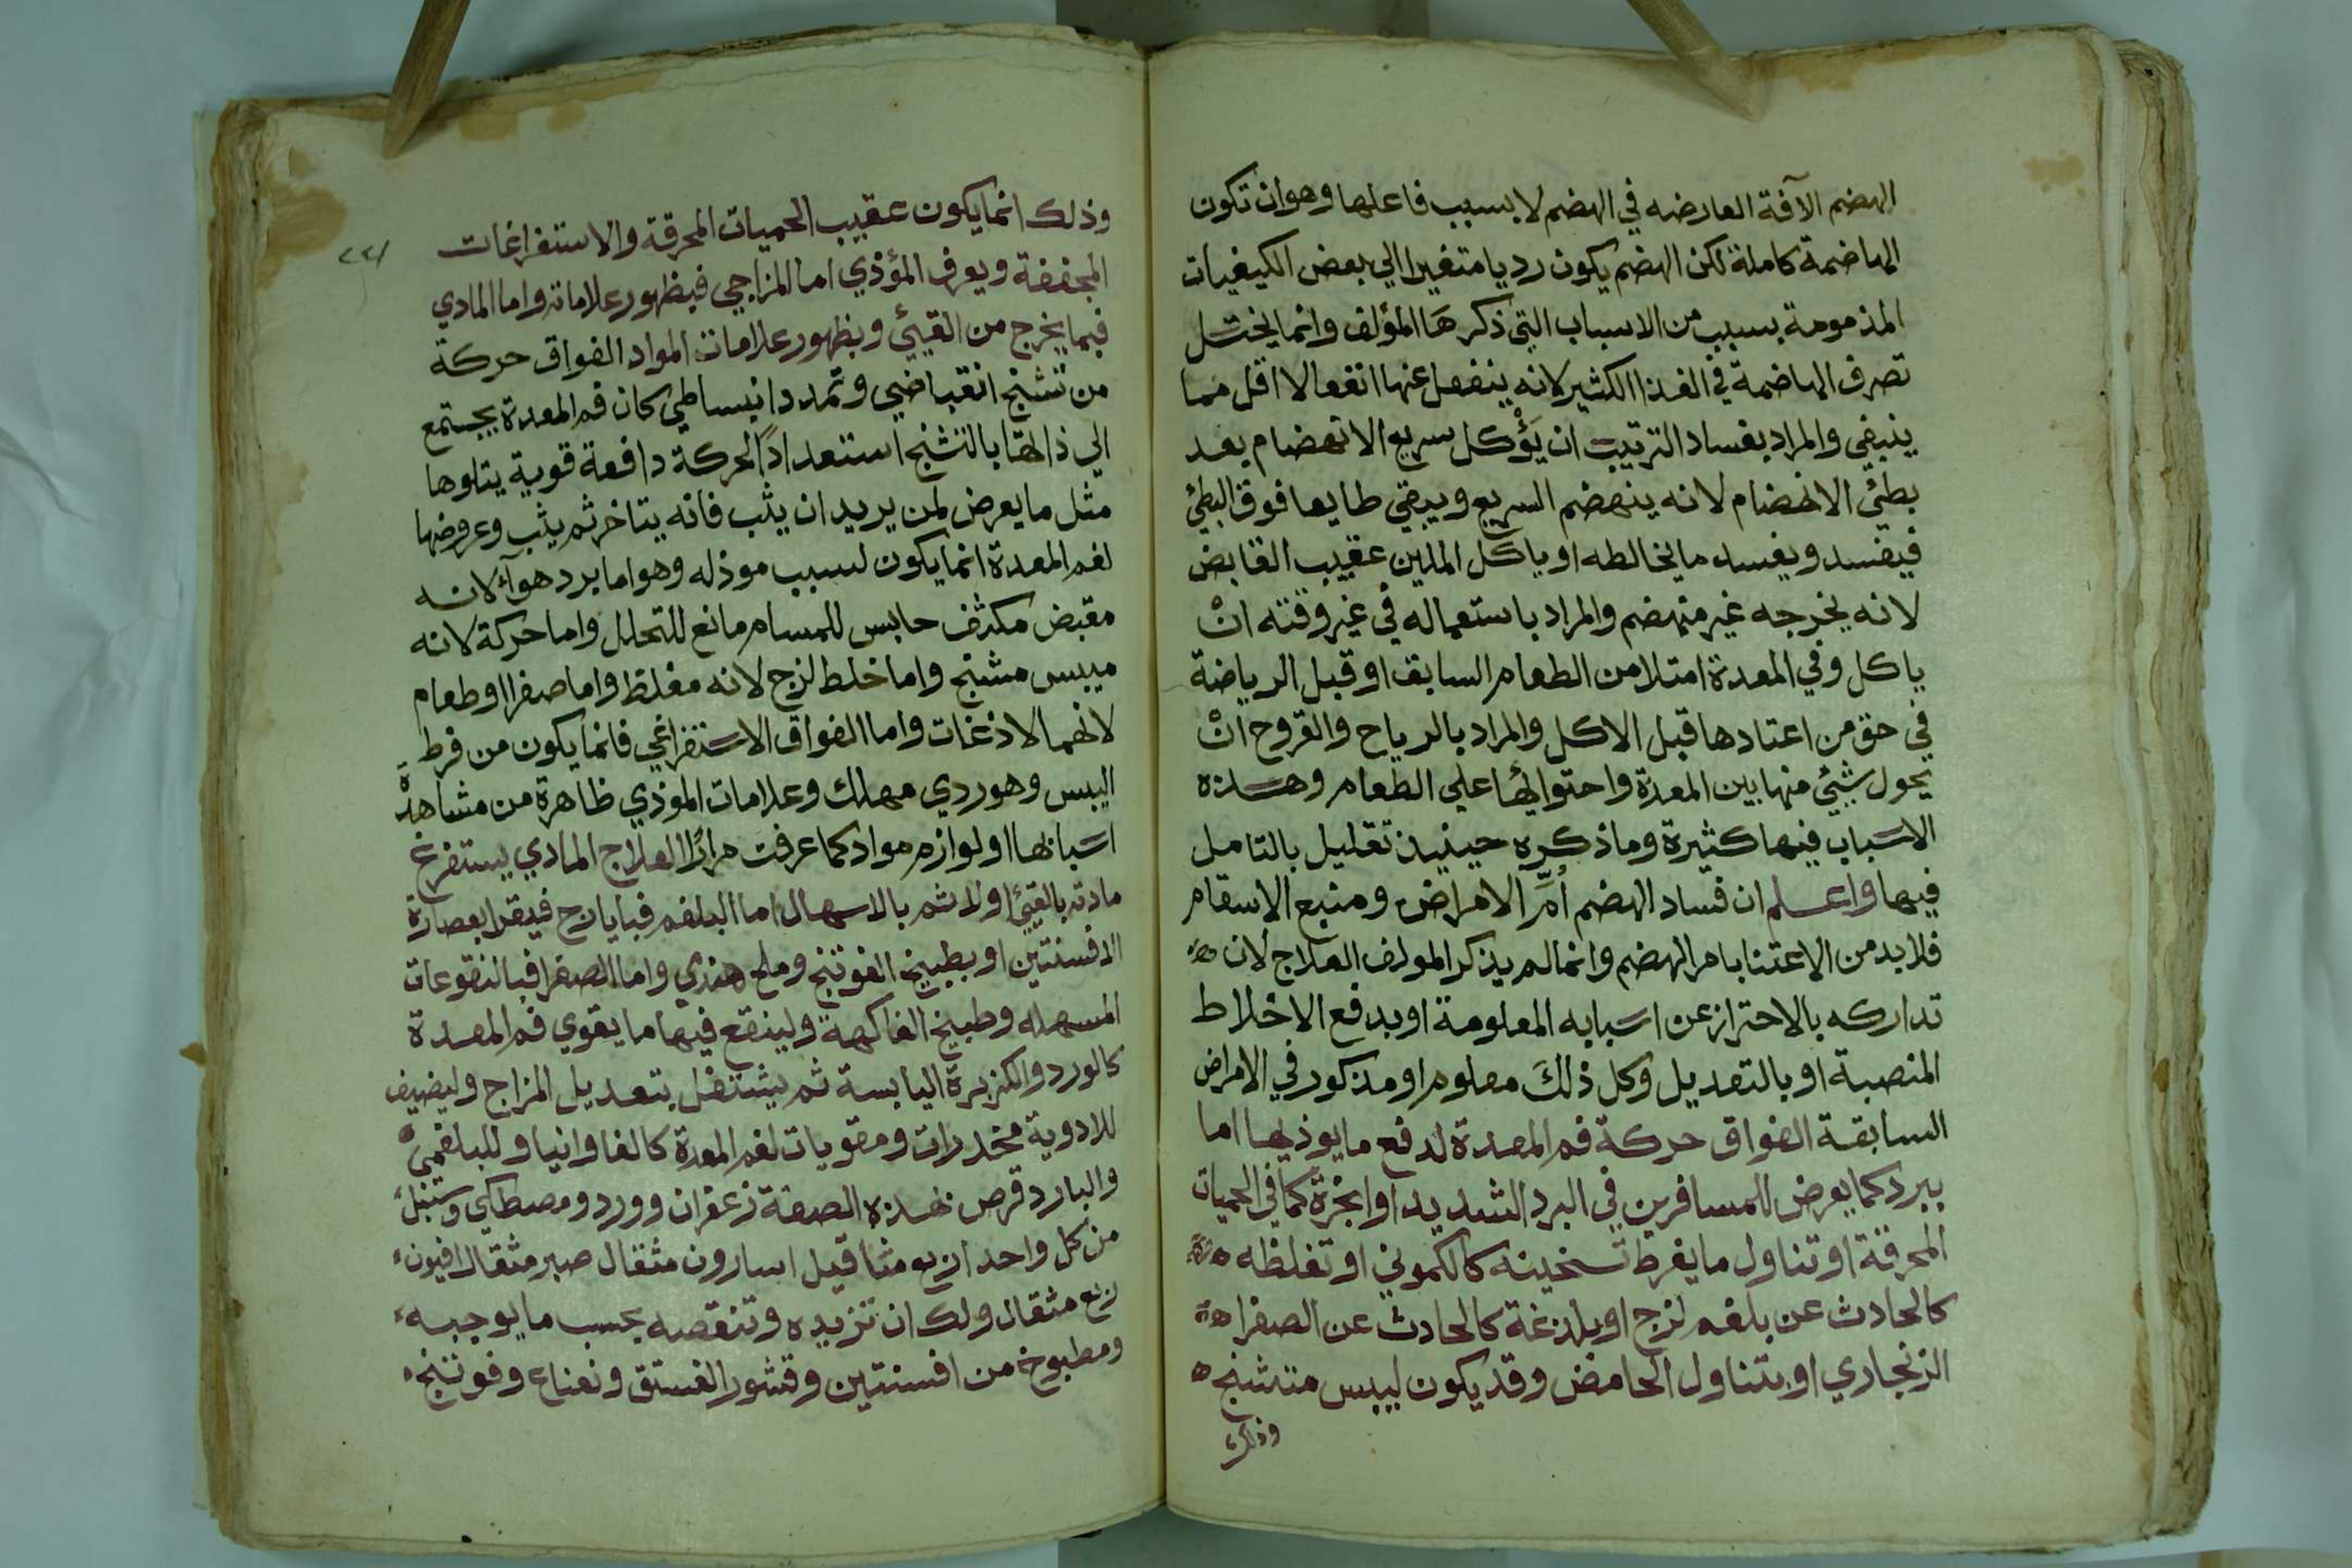 الهضم الآفة العارضه في الهضم لا بسبب فاعلها وهو ان تكون
الهاضمة كاملة لكن الهضم يكون رديا متغيرا الي بعض الكيفيات
المذمومة بسبب من الاسباب التي ذكرهَا المؤلف وانما يختل
تصرف الهاضمة في الغذا الكثير لانه ينفعل عنها انفعالا اقل مما
ينبغي والمراد بفساد الترتيب ان يَؤْكل سريع الانهضام بعد
بطيئ الانهضام لانه ينهضم السريع ويبقي طايعا فوق البطئ
فيفسد ويفسد ما يخالطه او ياكل الملين عقيب القابض
لانه يخرجه غير منهضم والمراد باستعماله في غير وقته انْ
ياكل وفي المعدة امتلا من الطعام السابق او قبل الرياضة
في حق من اعتادها قبل الاكل والمراد بالرياح والقروح انْ
يحول شيئ منها بين المعدة واحتوائها علي الطعام وهذه
الاسباب فيها كثيرة وما ذكره حينيذ تقليل بالتامل
فيها واعلم ان فساد الهضم أمّ الامراض ومنبع الاسقام
فلا بد من الاعتنا بامر الهضم وانما لم يذكر المولف العلاج لان
تداركه بالاحتراز عن اسبابه المعلومة او بدفع الاخلاط
المنصبة او بالتعديل وكل ذلكَ معلوم او مذكور في الامراض
السابقة الفواق حركة فم المعدة لدفع ما يوذيها اما
ببرد كما يعرض للمسافرين في البرد الشديد او ابخرة كما في الحميات
المحرقة او تناول ما يفرط تسخينه كالكموني او تغلظه
كالحادث عن بلغم لزج او بلذعة كالحادث عن الصفرا
الزنجاري او بتناول الحامض وقد يكون ليبس متشنج
وذلك
٢٢١
وذلك انما يكون عقيب الحميات المحرقة والاستفراغات
المجففة ويعرف المؤذي اما المزاجي فبظهور علاماته واما المادي
فبما يخرج من القيئ وبظهور علامات المواد الفواق حركة
من تشنج انقباضي وتمدد انبساطي كان فم المعدة يجتمع
الي ذاتها بالتشنج استعداداً لحركة دافعة قوية يتلوها
مثل ما يعرض لمن يريد ان يثب فانه يتاخر ثم يثب وعروضها
لفم المعدة انما يكون لسبب موذ له وهو اما برد هوآ لانه
مقبض مكثف حابس للمسام مانع للتحلل واما حركة لانه
ميبس مشنج واما خلط لزج لانه مغلظ واما صفرا او طعام
لانهما لاذغات واما الفواق الاستفراغي فانما يكون من فرط
اليبس وهو ردي مهلك وعلامات الموذي ظاهرة من مشاهدة
اسبابها او لوازم مواد كما عرفت مرارًا العلاج المادي يستفرغ
مادته بالقيئ اولا ثم بالاسهال اما البلغم فبايارج فيقرا بعصارة
الافسنتين او بطبيخ الفوتنج وملح هندي واما الصفرا فبالنقوعات
المسهله وطبيخ الفاكهة ولينقع فيها ما يقوي فم المعدة
كالورد والكزبرة اليابسة ثم يشتغل بتعديل المزاج وليضيف
للادوية مخدرات ومقويات لفم المعدة كالفاوانيا وللبلغمي
والبارد قرص بهذه الصفة زعفران وورد ومصطكي وسنبل
من كل واحد اربع مثاقيل اسارون مثقال صبر مثقال افيون
ربع مثقال ولك ان تزيده وتنقصه بحسب ما يوجبه
ومطبوخ من افسنتين وقشور الفستق ونعناع وفوتنج